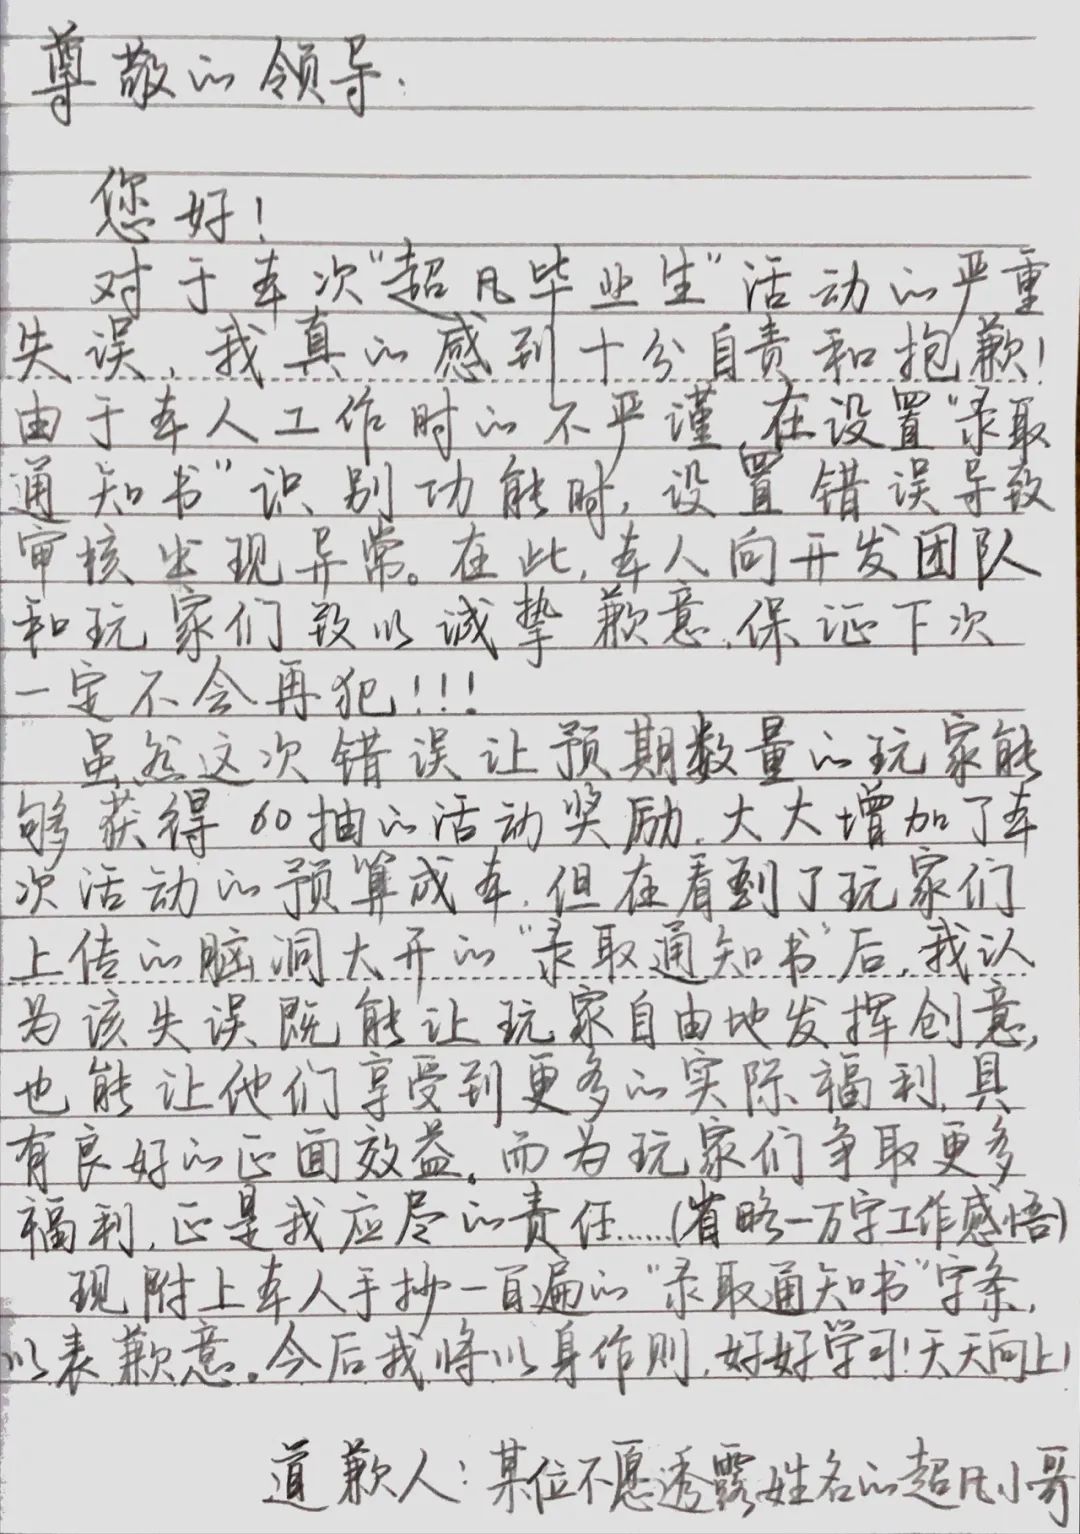 尊敬的领导:
您好!
对于本次“超凡毕业生”活动的严重
失误,我真的感到十分自责和抱歉!
由于本人工作时的不严谨,在设置“录取
通知书”识别功能时,设置错误导致
审核出现异常。在此,本人向开发团队
和玩家们致以诚挚歉意,保证下次
一定不会再犯!!!
虽然这次错误让预期数量的玩家能
够获得60抽的活动奖励,大大增加了本
次活动的预算成本,但在看到了玩家们
上传的脑洞大开的“录取通知书”后,我认
为该失误既能让玩家自由地发挥创意,
也能让他们享受到更多的实际福利,具
有良好的正面效益。而为玩家们争取更多
福利,正是我应尽的责任……(省略一万字工作感悟)
现附上本人手抄一百遍的“录取通知书”字条,
以表歉意。今后我将以身作则,好好学习!天天向上!
道歉人:某位不愿透露姓名的超凡小哥